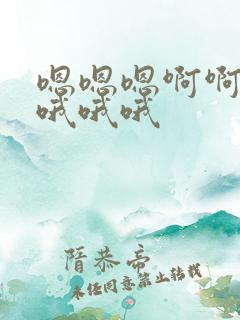 嗯嗯嗯啊啊
哦哦哦
隋恭帝
未经同意禁止转载